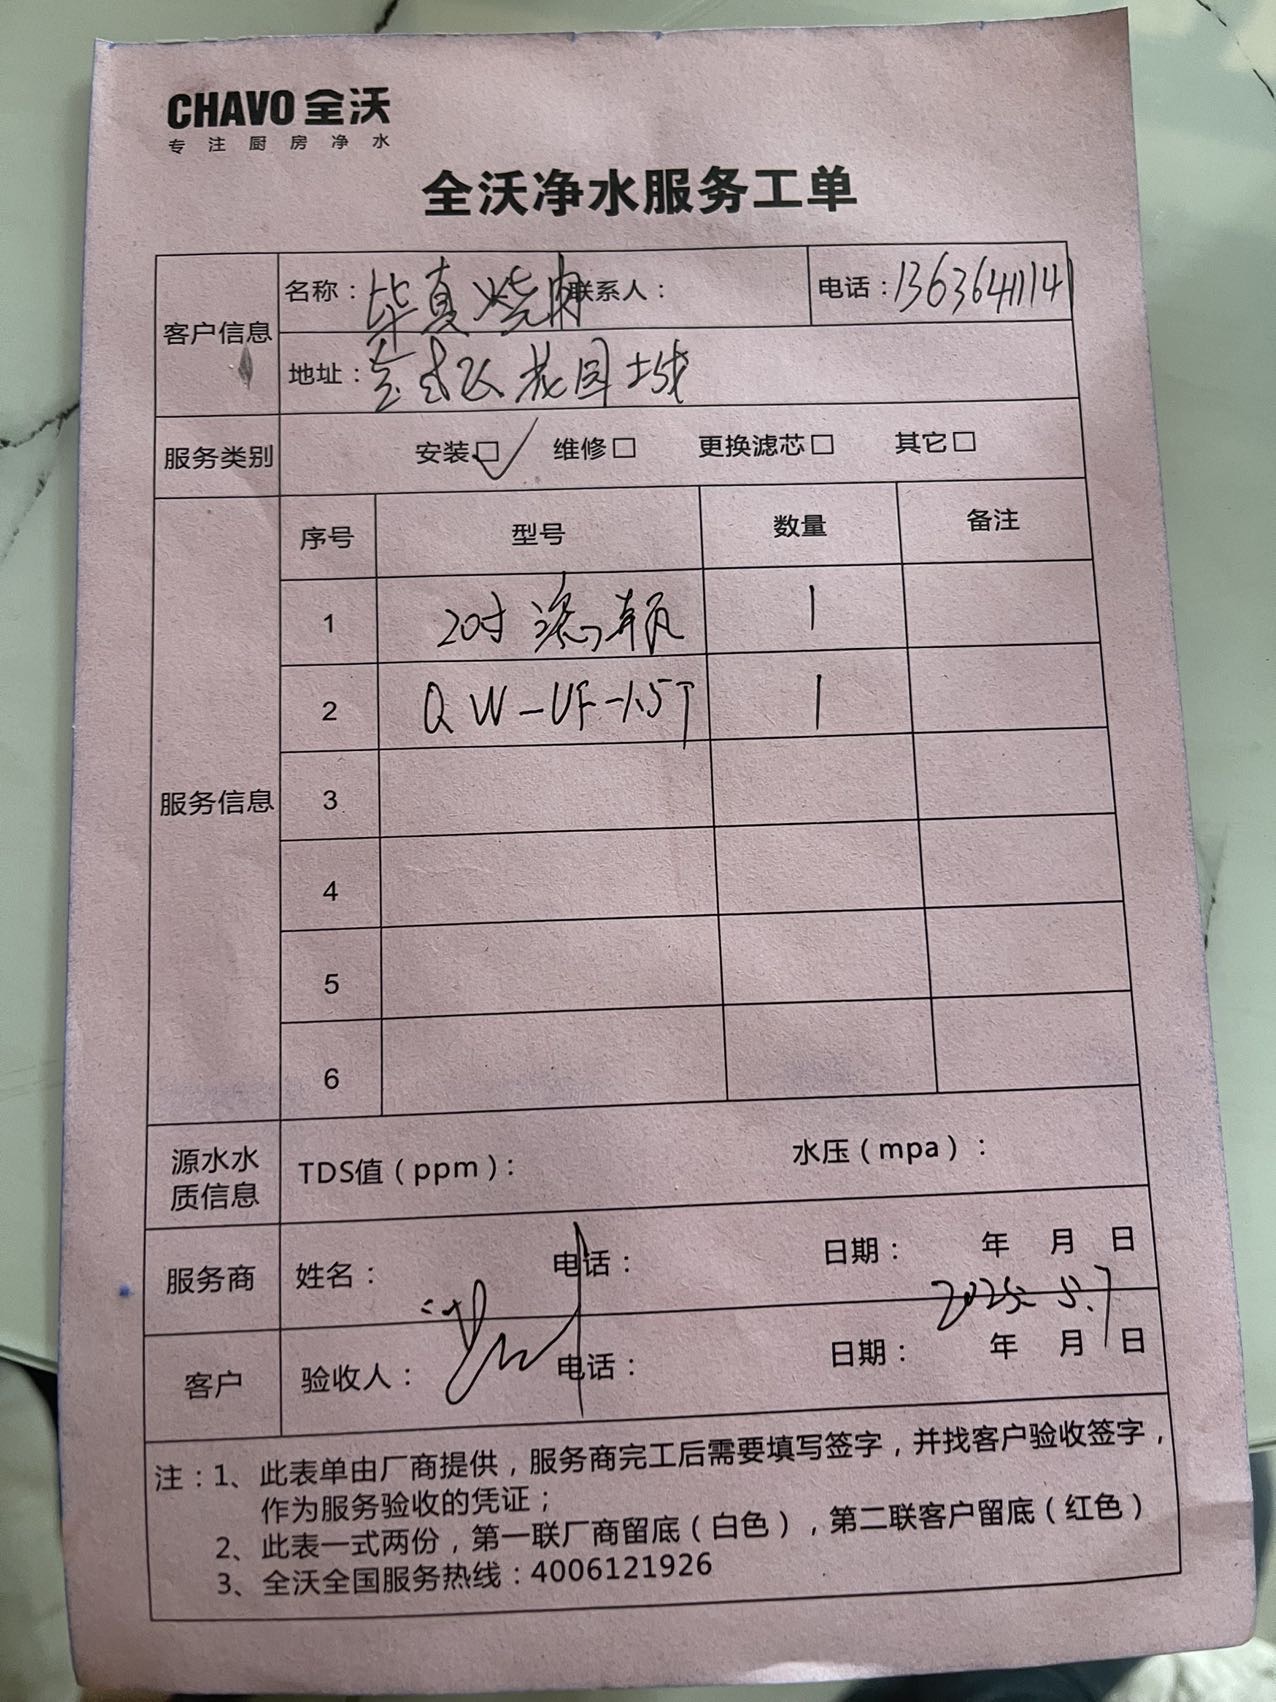 CHAVO 全沃
专注厨房净水
全沃净水服务工单
客户信息
名称：毕真烧肉 联系人：
电话：13636411141
地址：
花园城
服务类别
安装☑ 维修□ 更换滤芯□ 其它□
服务信息
序号 型号 数量 备注
1 20寸滤瓶 1
2 QW-UF-1.5T 1
3
4
5
6
源水水质信息
TDS值（ppm）： 水压（mpa）：
服务商 姓名： 电话： 日期： 年 月 日
2025. 5.7
客户 验收人： 电话： 日期： 年 月 日
注：1、此表单由厂商提供，服务商完工后需要填写签字，并找客户验收签字，
作为服务验收的凭证；
2、此表一式两份，第一联厂商留底（白色），第二联客户留底（红色）
3、全沃全国服务热线：4006121926